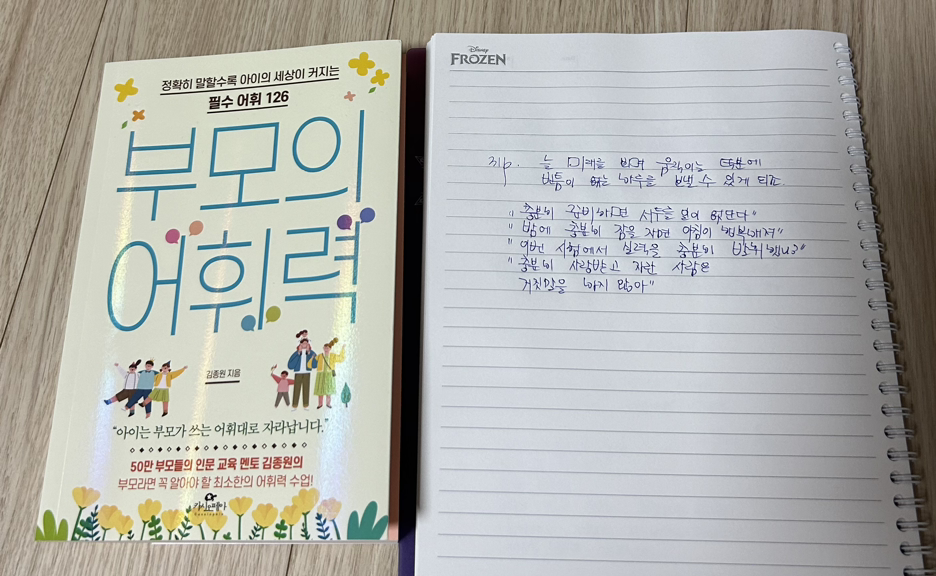 정확히 말할수록 아이의 세상이 커지는
필수 어휘 126
부모의
어휘력
김종원 지음
"아이는 부모가 쓰는 어휘대로 자라납니다."
50만 부모들의 인문 교육 멘토 김종원의
부모라면 꼭 알아야 할 최소한의 어휘력 수업!
카시오페아
Cassiopeia
Disney
FROZEN
31p. 늘 미래를 보며 움직이는 덕분에
빈틈이 없는 하루를 보낼 수 있게 되죠.
"충분히 준비하면 서두를 일이 없단다"
"밤에 충분히 잠을 자면 아침이 행복해져"
"이번 시험에서 실력을 충분히 발휘했니?"
"충분히 사랑받고 자란 사람은
거짓말을 하지 않아"